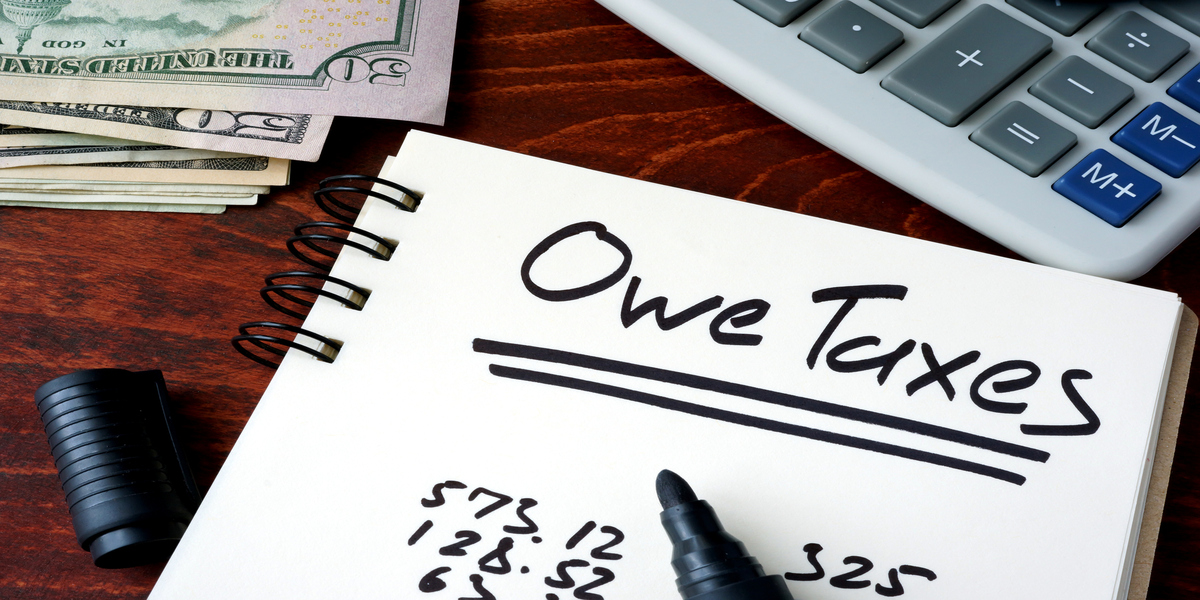 IN GOD
THE UNITED STATES
50
50
FEDERAL
+
÷
−
=
M−
M+
Owe Taxes
573.12
128.52
325